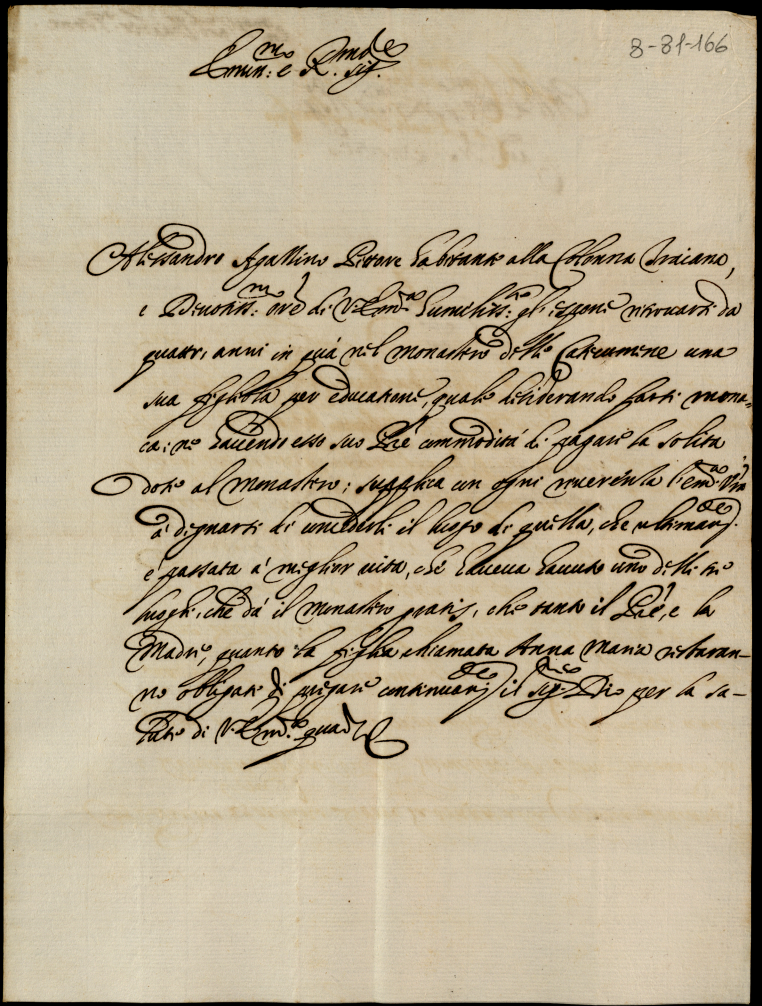 8-81-166
Emin:mo e R.mo Sig.re
Alessandro Agallino Pittore habitante alla Colonna Traiana,
e Devotiss:mo ore di V. Em.za humiliss:te gl'espone ritrovarsi da
quattr'anni in quà nel monastero delle Catecumene una
sua figliola per educatione, quale desiderando farsi mona-
ca: ne havendo esso suo Pre commodità di pagare la solita
dote al monastero; supplica con ogni riverenza l'em.za V.ra
à degnarsi di concederli il luogo di quella, che ultimam.te
è passata à miglior vita, che haveva havuto uno delli tre
luoghi, che dà il monastero gratis, che tanto il Pre, e la
Madre, quanto la figlia chiamata Anna Maria restaran-
no obligati di pregare continuam.te il Sig.re Dio per la sa-
lute di V. Em.za quam